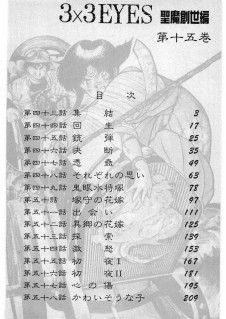 3×3EYES 聖魔創世編
第十五巻
目次
第四十三話 集結 3
第四十四話 回生 17
第四十五話 銃弾 25
第四十六話 決断 35
第四十七話 憑蟲 49
第四十八話 それぞれの思い 63
第四十九話 鬼眼水将塚 78
第五十話 塚守の花嫁 97
第五十一話 出会い 111
第五十二話 異郷の花嫁 125
第五十三話 探索 139
第五十四話 激怒 153
第五十五話 初夜I 167
第五十六話 初夜II 181
第五十七話 心の傷 195
第五十八話 かわいそうな子 209